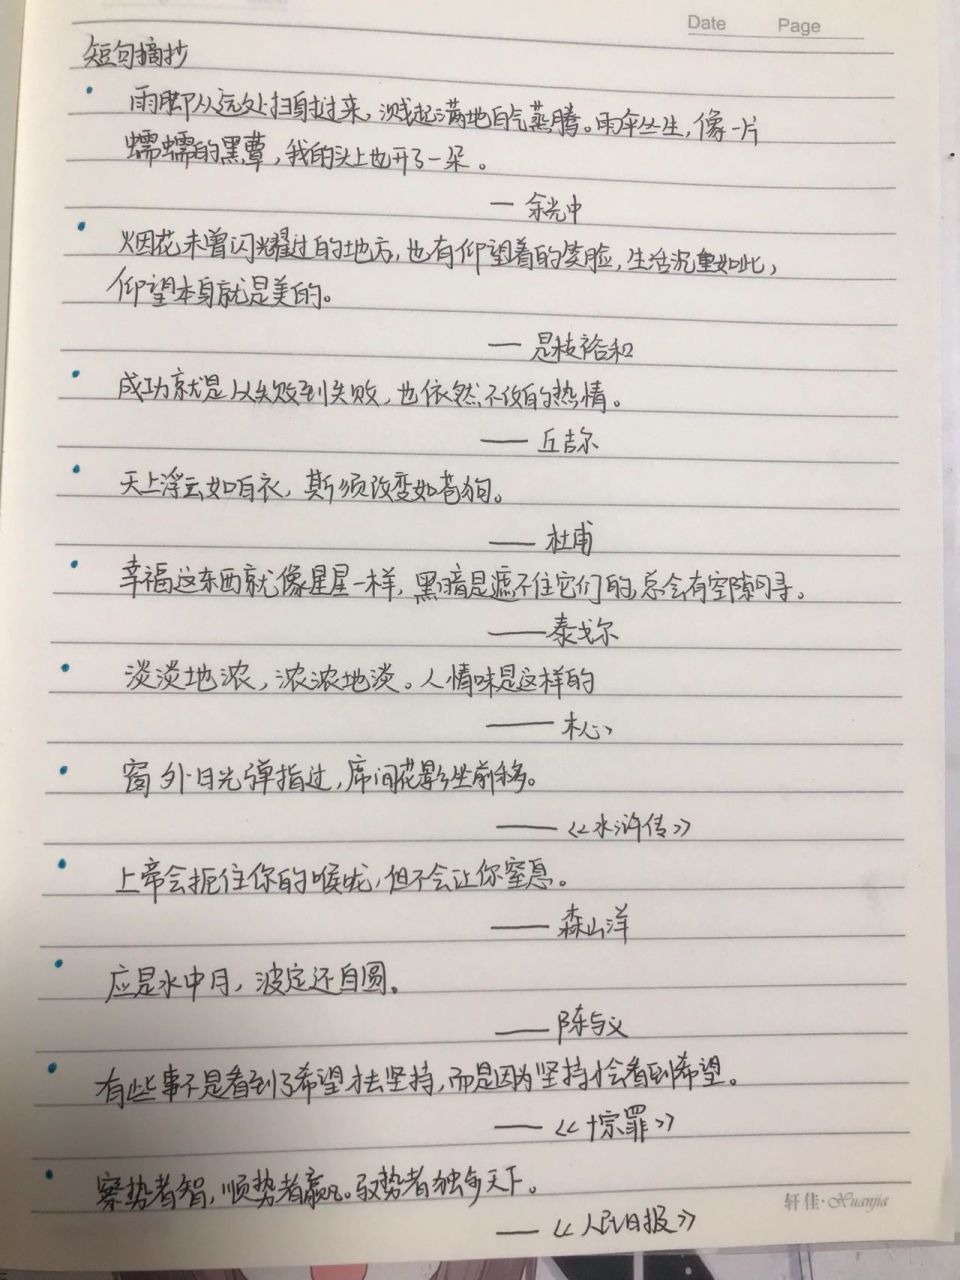 Date Page
短句摘抄
雨脚从远处扫射过来，溅起满地白气蒸腾。雨伞丛生，像一片
蠕蠕的黑蕈，我的头上也开了一朵。
— 余光中
烟花未曾闪耀过的地方，也有仰望着的笑脸，生活沉重如此，
仰望本身就是美的。
— 是枝裕和
成功就是从失败到失败，也依然不改的热情。
—— 丘吉尔
天上浮云如白衣，斯须改变如苍狗。
—— 杜甫
幸福这东西就像星星一样，黑暗是遮不住它们的，总会有空隙可寻。
——泰戈尔
淡淡地浓，浓浓地淡。人情味是这样的
—— 木心
窗外日光弹指过，席间花影坐前移。
——《水浒传》
上帝会扼住你的喉咙，但不会让你窒息。
—— 森山洋
应是水中月，波定还自圆。
—— 陈与义
有些事不是看到了希望才去坚持，而是因为坚持才会看到希望。
——《十宗罪》
察势者智，顺势者赢。驭势者独步天下。
轩佳·Xuanjia
——《人民日报》